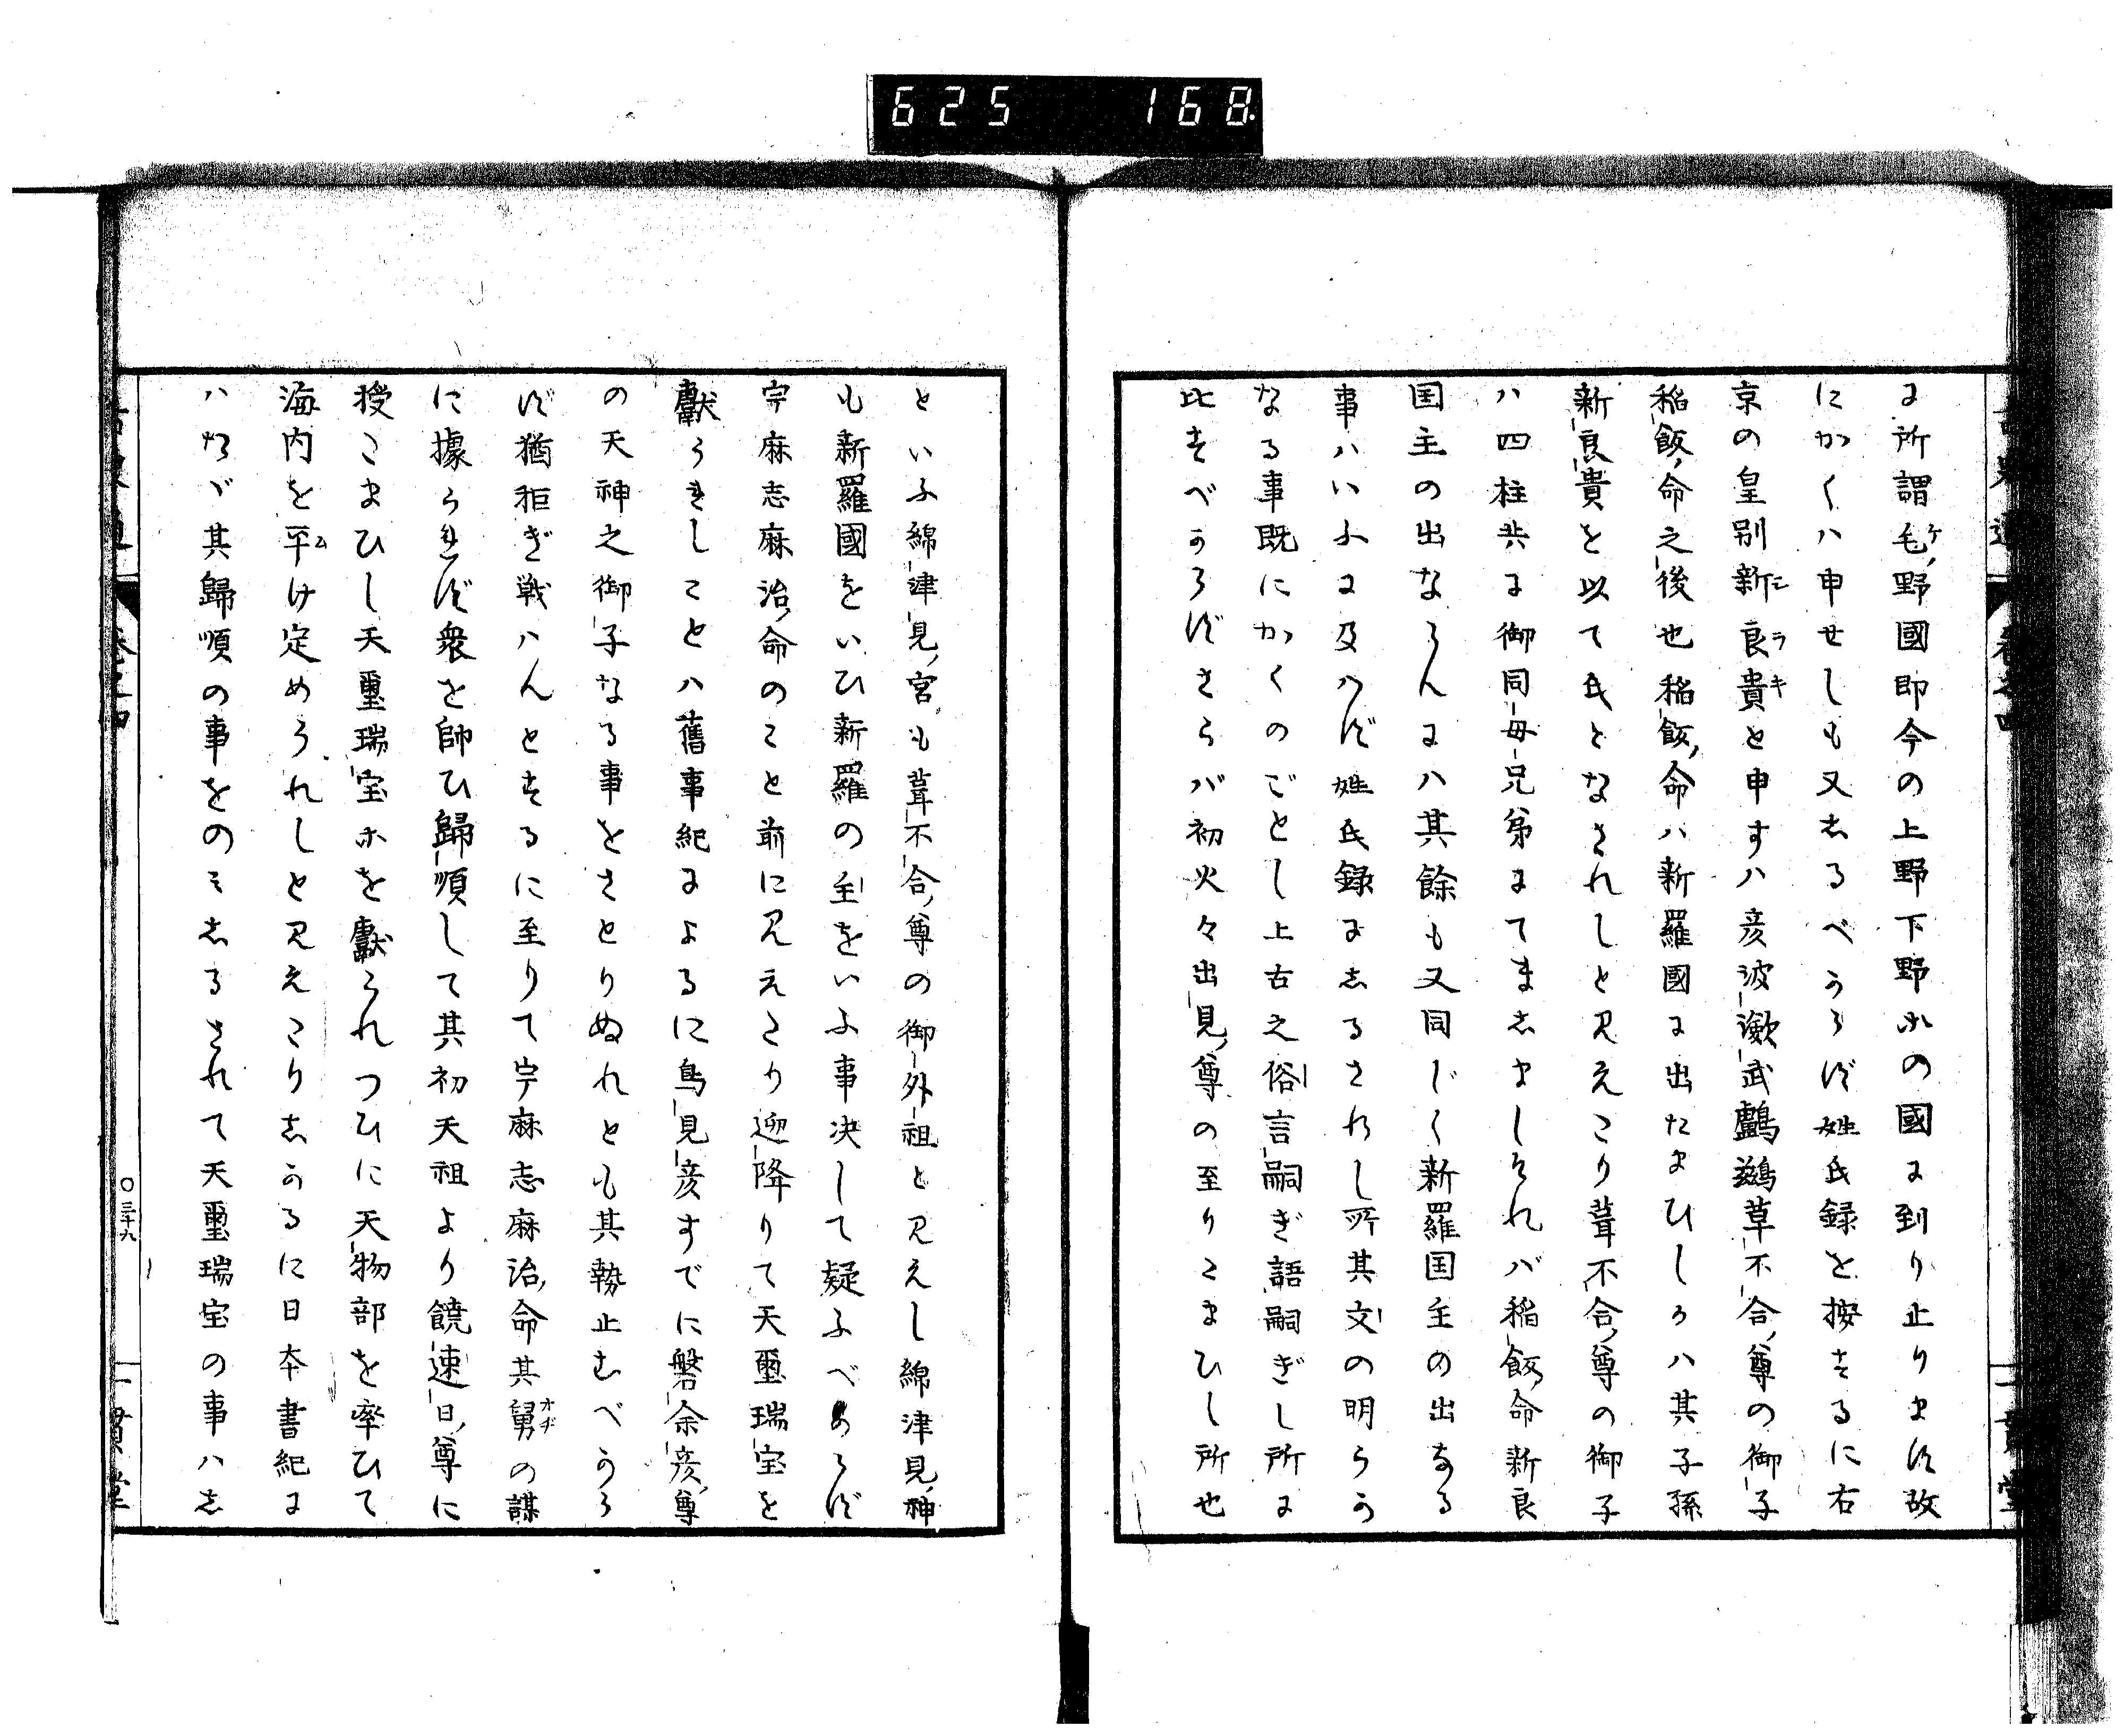 625 168
に所謂毛野國即今の上野下野ホの國に到り止ります故
にかくハ申せしも又志るべからず姓氏録を按ずるに右
京の皇別新良貴と申すハ彦波瀲武鸕鷀草不合尊の御子
稲飯命之後也稲飯命ハ新羅國に出たまひしかハ其子孫
新良貴を以て氏となされしと見えたり葺不合尊の御子
ハ四柱共に御同母兄弟にてましましそれバ稲飯命新良
国主の出ならんにハ其餘も又同じく新羅国主の出なる
事ハいふに及ハず姓氏録に志るされし所其文の明らか
なる事既にかくのごとし上古之俗言嗣ぎ語嗣ぎし所に
比すべからずさらバ初火々出見尊の至りたまひし所也
といふ綿津見宮も葺不合尊の御外祖と見えし綿津見神
も新羅國をいひ新羅の主をいふ事决して疑ふべからず
宇麻志麻治命のこと前に見えたり迎降りて天璽瑞宝を
獻られしことハ舊事紀によるに鳥見彦すでに磐余彦尊
の天神之御子なる事をさとりぬれとも其勢止むべから
ず猶拒ぎ戦ハんとするに至りて宇麻志麻治命其舅の謀
に據られず衆を帥ひ歸順して其初天祖より饒速日尊に
授たまひし天璽瑞宝ホを獻られつひに天物部を率ひて
海内を平け定められしと見えたり志かるに日本書紀に
ハたゞ其歸順の事をのミ志るされて天璽瑞宝の事ハ志
巻之四
〇三十九
一貫堂